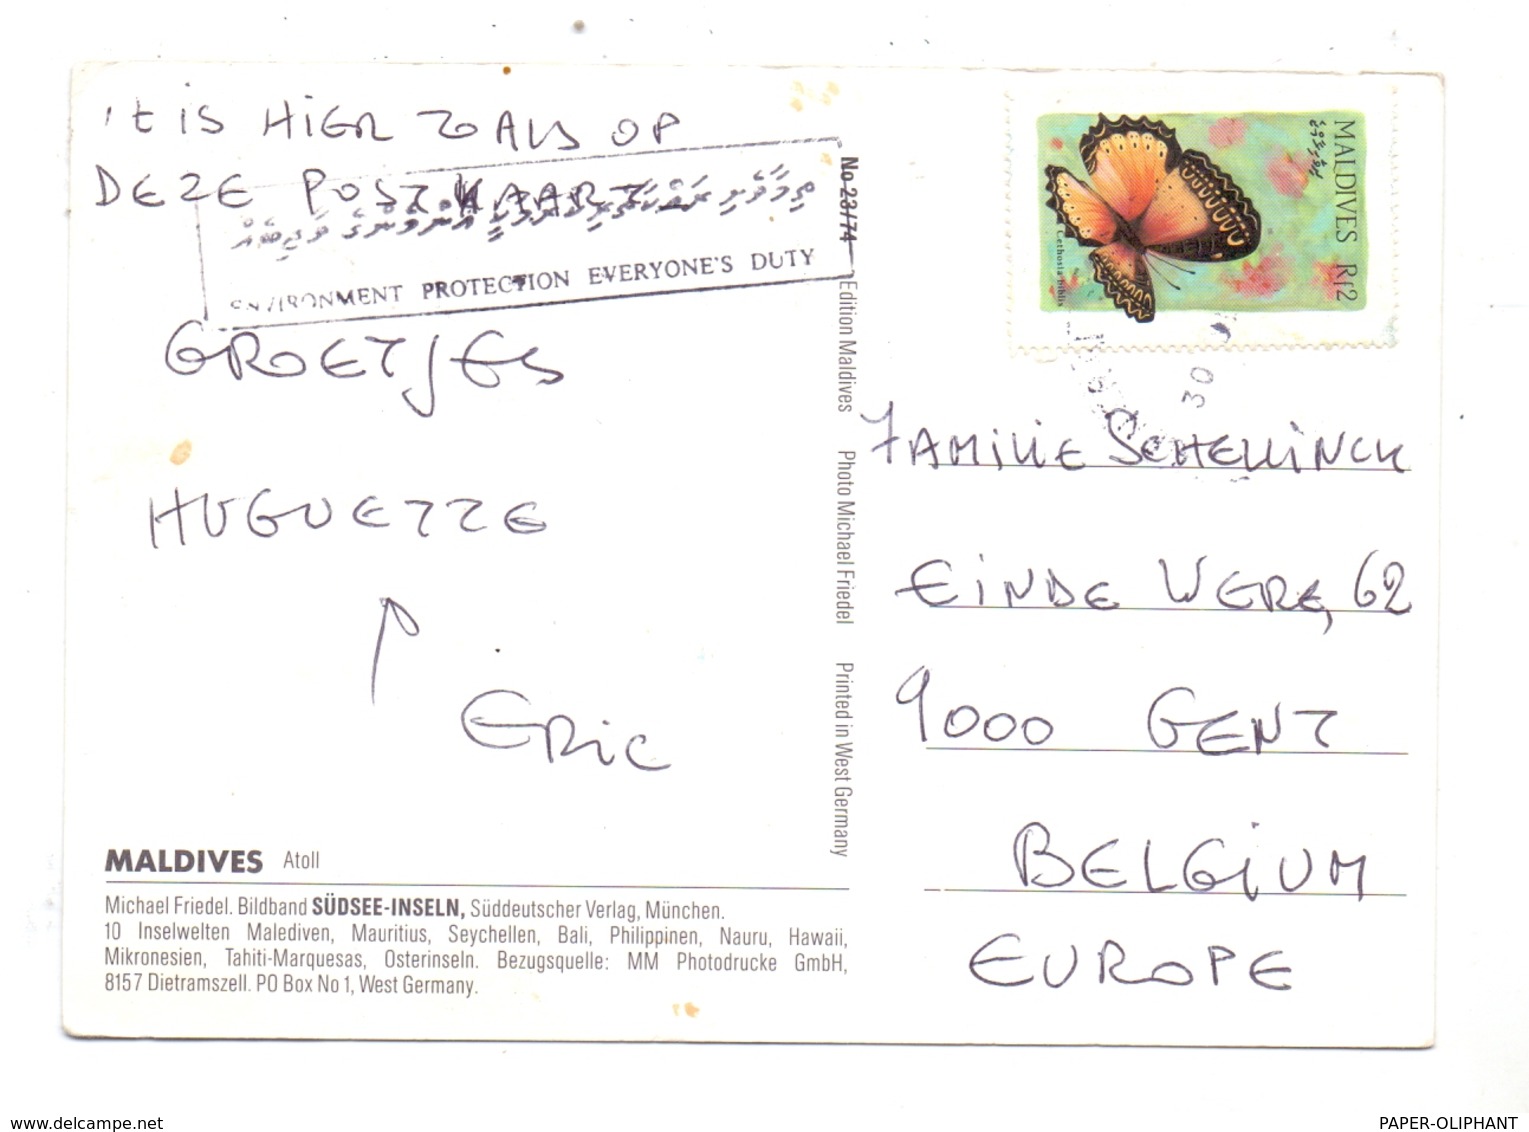 't is HIER ZOALS OP
DEZE POSTKAART
ENVIRONMENT PROTECTION EVERYONE'S DUTY
GROETJES
HUGUETTE
ERIC
MALDIVES Atoll
Michael Friedel. Bildband SÜDSEE-INSELN, Süddeutscher Verlag, München.
10 Inselwelten Malediven, Mauritius, Seychellen, Bali, Philippinen, Nauru, Hawaii,
Mikronesien, Tahiti-Marquesas, Osterinseln. Bezugsquelle: MM Photodrucke GmbH,
8157 Dietramszell. PO Box No 1, West Germany.
No 23/74 Edition Maldives Photo Michael Friedel Printed in West Germany
MALDIVES Rf2
Cethosia biblis
30
FAMILIE SCHELLINCK
EINDE WERE, 62
9000 GENT
BELGIUM
EUROPE
www.delcampe.net
PAPER-OLIPHANT